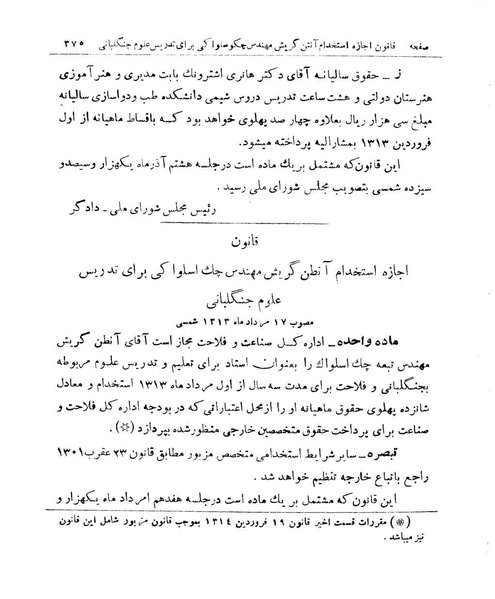 صفحه قانون اجازه استخدام آنتن گریش مهندس چکوسلواکی برای تدریس علوم جنگلبانی ۳۷۵
ز ــ حقوق سالیانه آقای دکتر هانری اشترونك بابت مدیری و هنرآموزی
هنرستان دولتی و هشت ساعت تدریس دروس شیمی دانشکده طب و دواسازی سالیانه
مبلغ سی هزار ریال بعلاوه چهار صد پهلوی خواهد بود کـه باقساط ماهیانه از اول
فروردین ۱۳۱۳ بمشارالیه پرداخته میشود.
این قانون که مشتمل بر یك ماده است در جلسه هشتم آذر ماه یکهزار وسیصدو
سیزده شمسی بتصویب مجلس شورای ملی رسید .
رئیس مجلس شورای ملی ـ دادگر
قانون
اجازه استخدام آنطن گریش مهندس چك اسلواکی برای تدریس
علوم جنگلبانی
مصوب ۱۷ مرداد ماه ۱۳۱۳ شمسی
ماده واحده ــ اداره کـل صناعت و فلاحت مجاز است آقای آنطن گریش
مهندس تبعه چك اسلواك را بعنوان استاد برای تعلیم و تدریس علـوم مربوطه
بجنگلبانی و فلاحت برای مدت سه سال از اول مرداد ماه ۱۳۱۳ استخدام و معادل
شانزده پهلوی حقوق ماهیانه او را ازمحل اعتباراتی که در بودجه اداره کل فلاحت و
صناعت برای پرداخت حقوق متخصصین خارجی منظور شده بپردازد (※) .
تبصره ــ سایر شرایط استخدامی متخصص مزبور مطابق قانون ۲۳ عقرب ۱۳۰۱
راجع باتباع خارجه تنظیم خواهد شد .
این قانون که مشتمل بر یك ماده است در جلسه هفدهم امرداد ماه یکهزار و
(※) مقررات قسمت اخیر قانون ۱۹ فروردین ۱۳۱۴ بموجب قانون مزبور شامل این قانون
نیز میباشد .